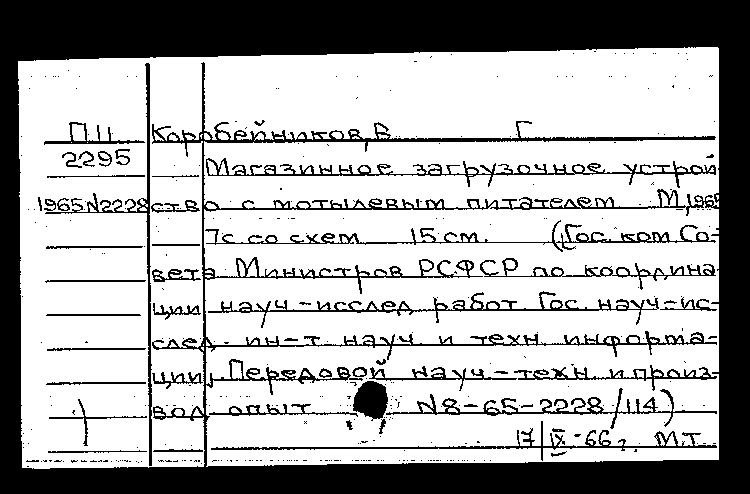 П11 Коробейников, В Г
2295 Магазинное загрузочное устрой-
1965 N2228 ство с мотылевым питателем М, 1965
7с со схем 15 см. (Гос. ком. Со-
вета Министров РСФСР по координа-
ции науч-исслед работ Гос. науч-ис-
след. ин-т науч и техн. информа-
ции, Передовой науч-техн. и произ-
вод опыт N8-65-2228/114)
17/IX-66г. М.Т.